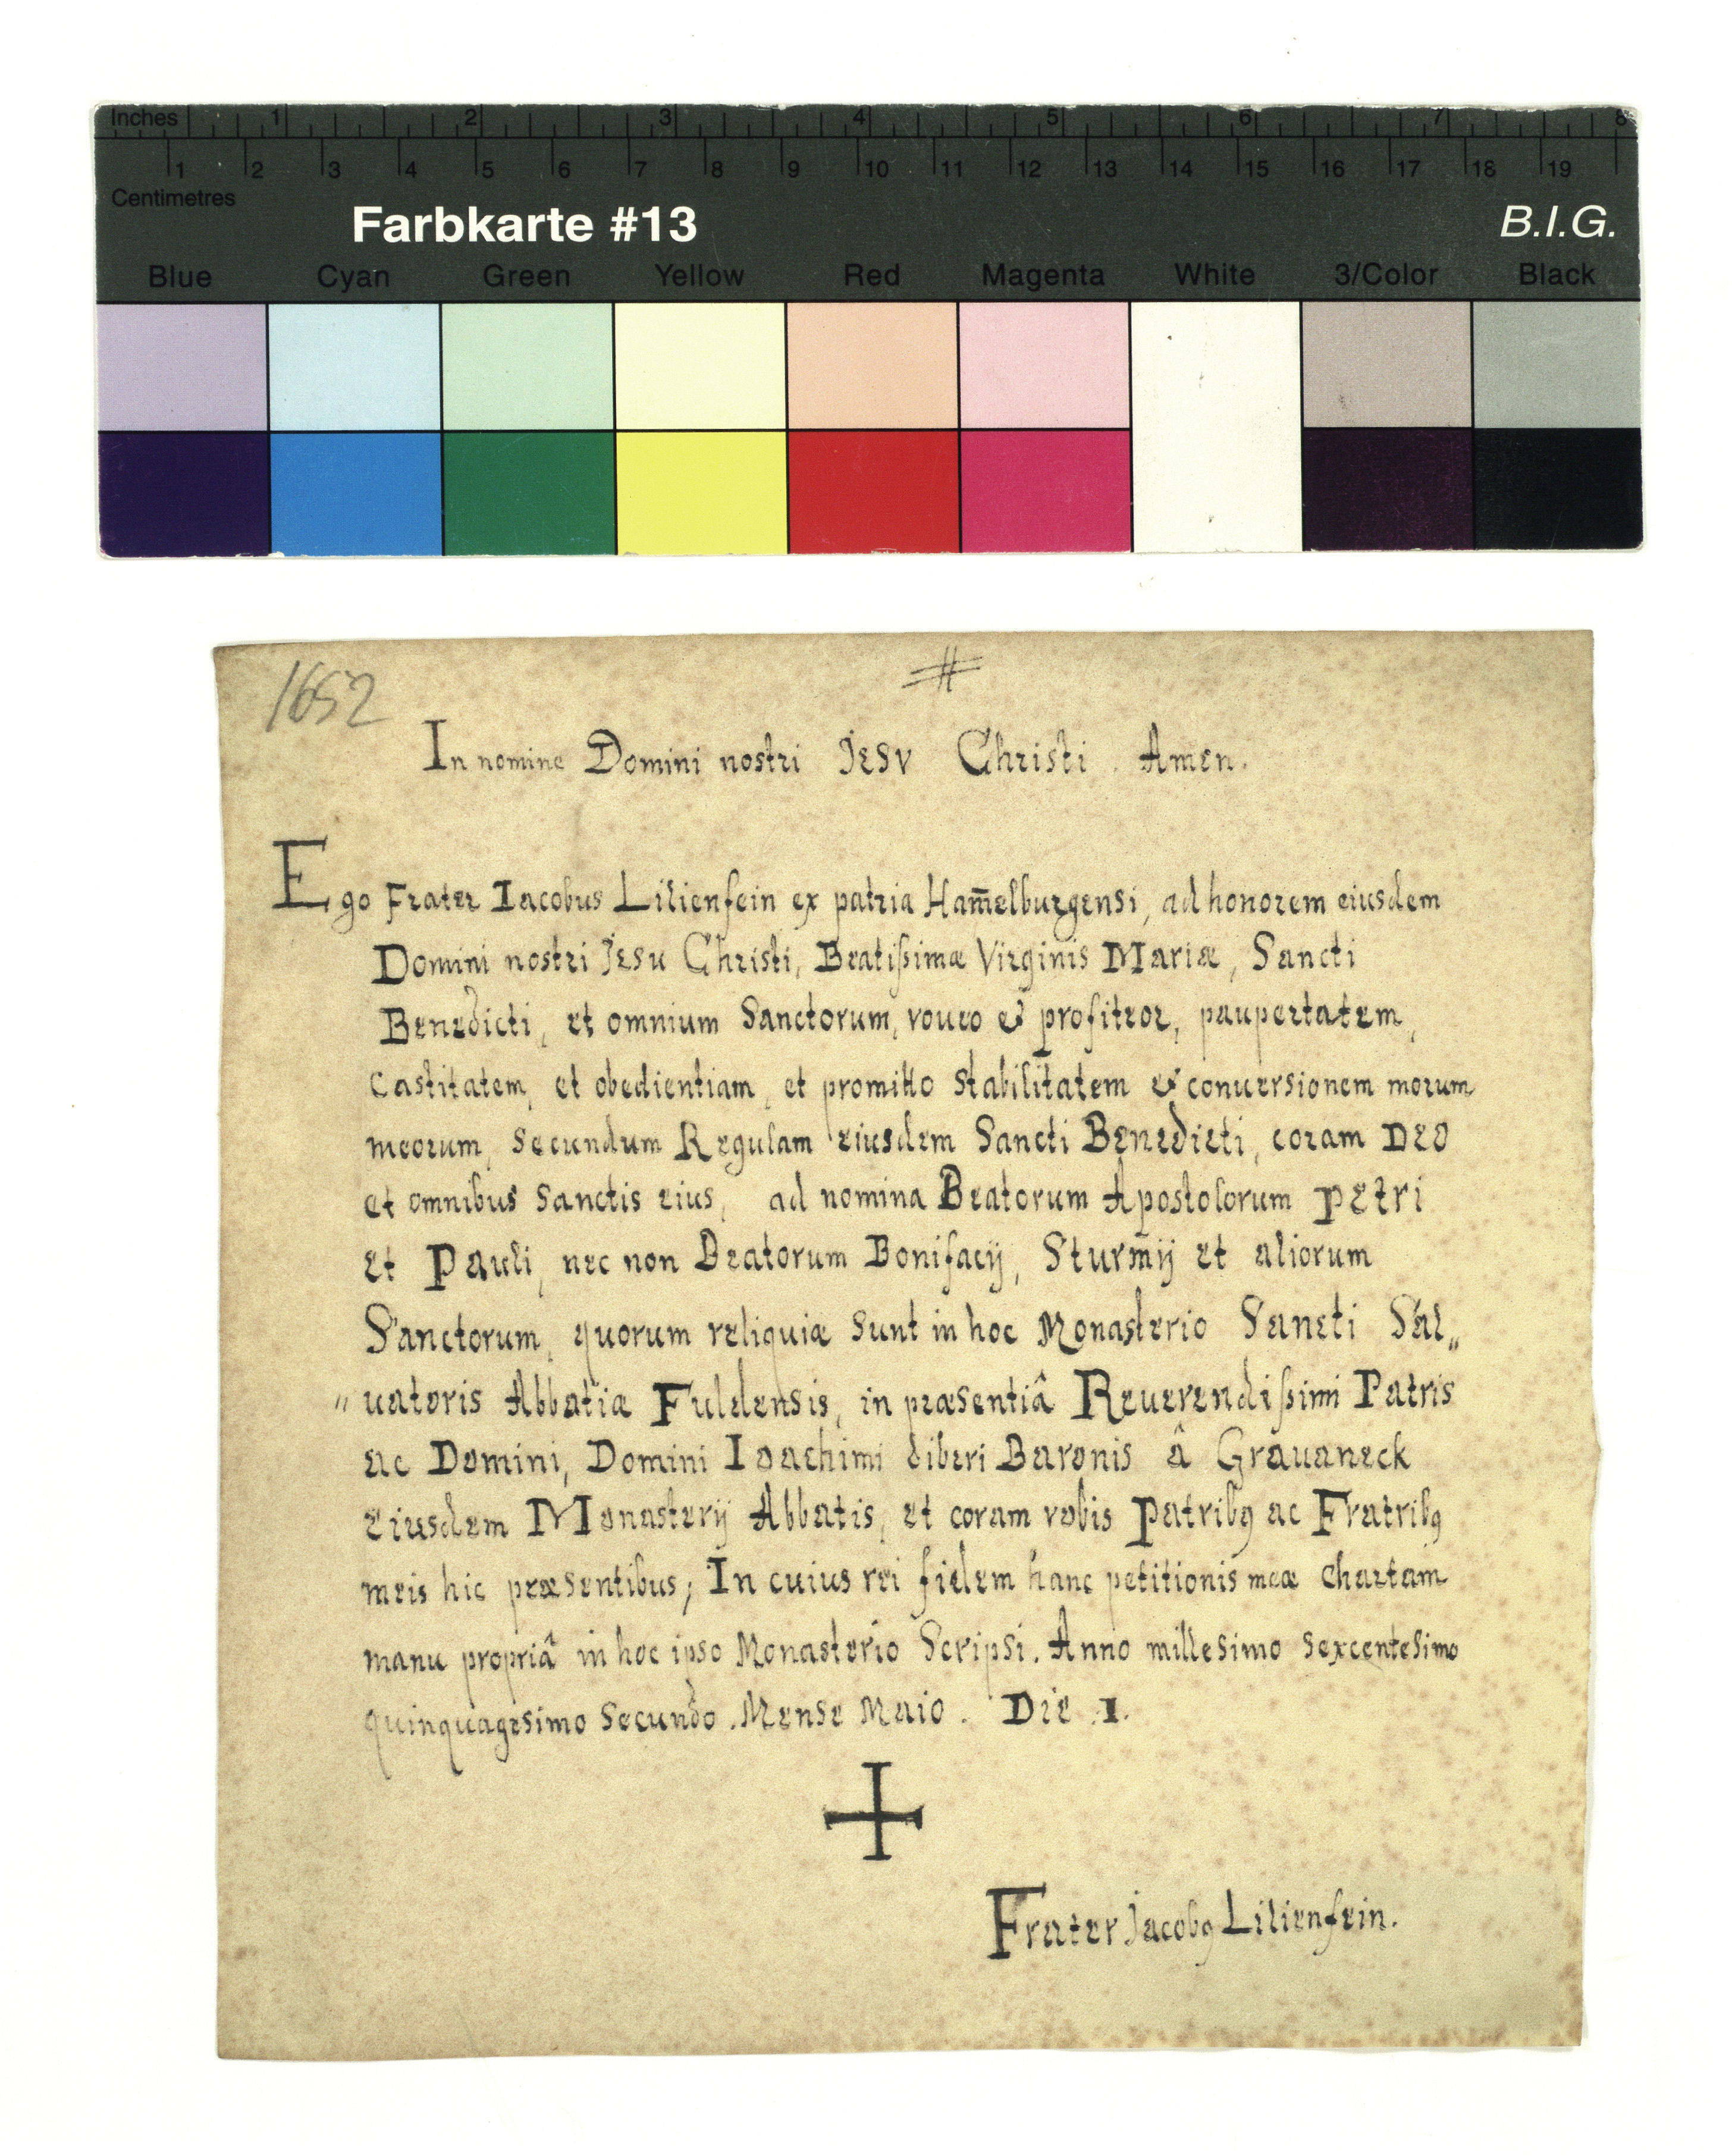 Inches 1 2 3 4 5 6 7 8
1 2 3 4 5 6 7 8 9 10 11 12 13 14 15 16 17 18 19
Centimetres
Farbkarte #13 B.I.G.
Blue Cyan Green Yellow Red Magenta White 3/Color Black
1652
#
In nomine Domini nostri JESV Christi. Amen.
Ego Frater Iacobus Lilienfein ex patria Ham̄elburgensi, ad honorem eiusdem
Domini nostri Jesu Christi, Beatißimæ Virginis Mariæ, Sancti
Benedicti, et omnium Sanctorum, voueo & profiteor, paupertatem,
Castitatem, et obedientiam, et promitto Stabilitatem & conuersionem morum
meorum, Secundum Regulam eiusdem Sancti Benedicti, coram DEO
et omnibus Sanctis eius, ad nomina Beatorum Apostolorum Petri
et Pauli, nec non Beatorum Bonifacij, Sturm̄ij et aliorum
Sanctorum, quorum reliquiæ Sunt in hoc Monasterio Sancti Sal„
„uatoris Abbatiæ Fuldensis, in præsentiâ Reuerendißimi Patris
ac Domini, Domini Ioachimi liberi Baronis â Grauaneck
eiusdem Monasterij Abbatis, et coram vobis Patribꝰ ac Fratribꝰ
meis hic præsentibus; In cuius rei fidem hanc petitionis meæ Chartam
manu propriâ in hoc ipso Monasterio Scripsi. Anno millesimo Sexcentesimo
quinquagesimo Secundo. Mense Maio. Die 1.
Frater Jacobꝰ Lilienfein.